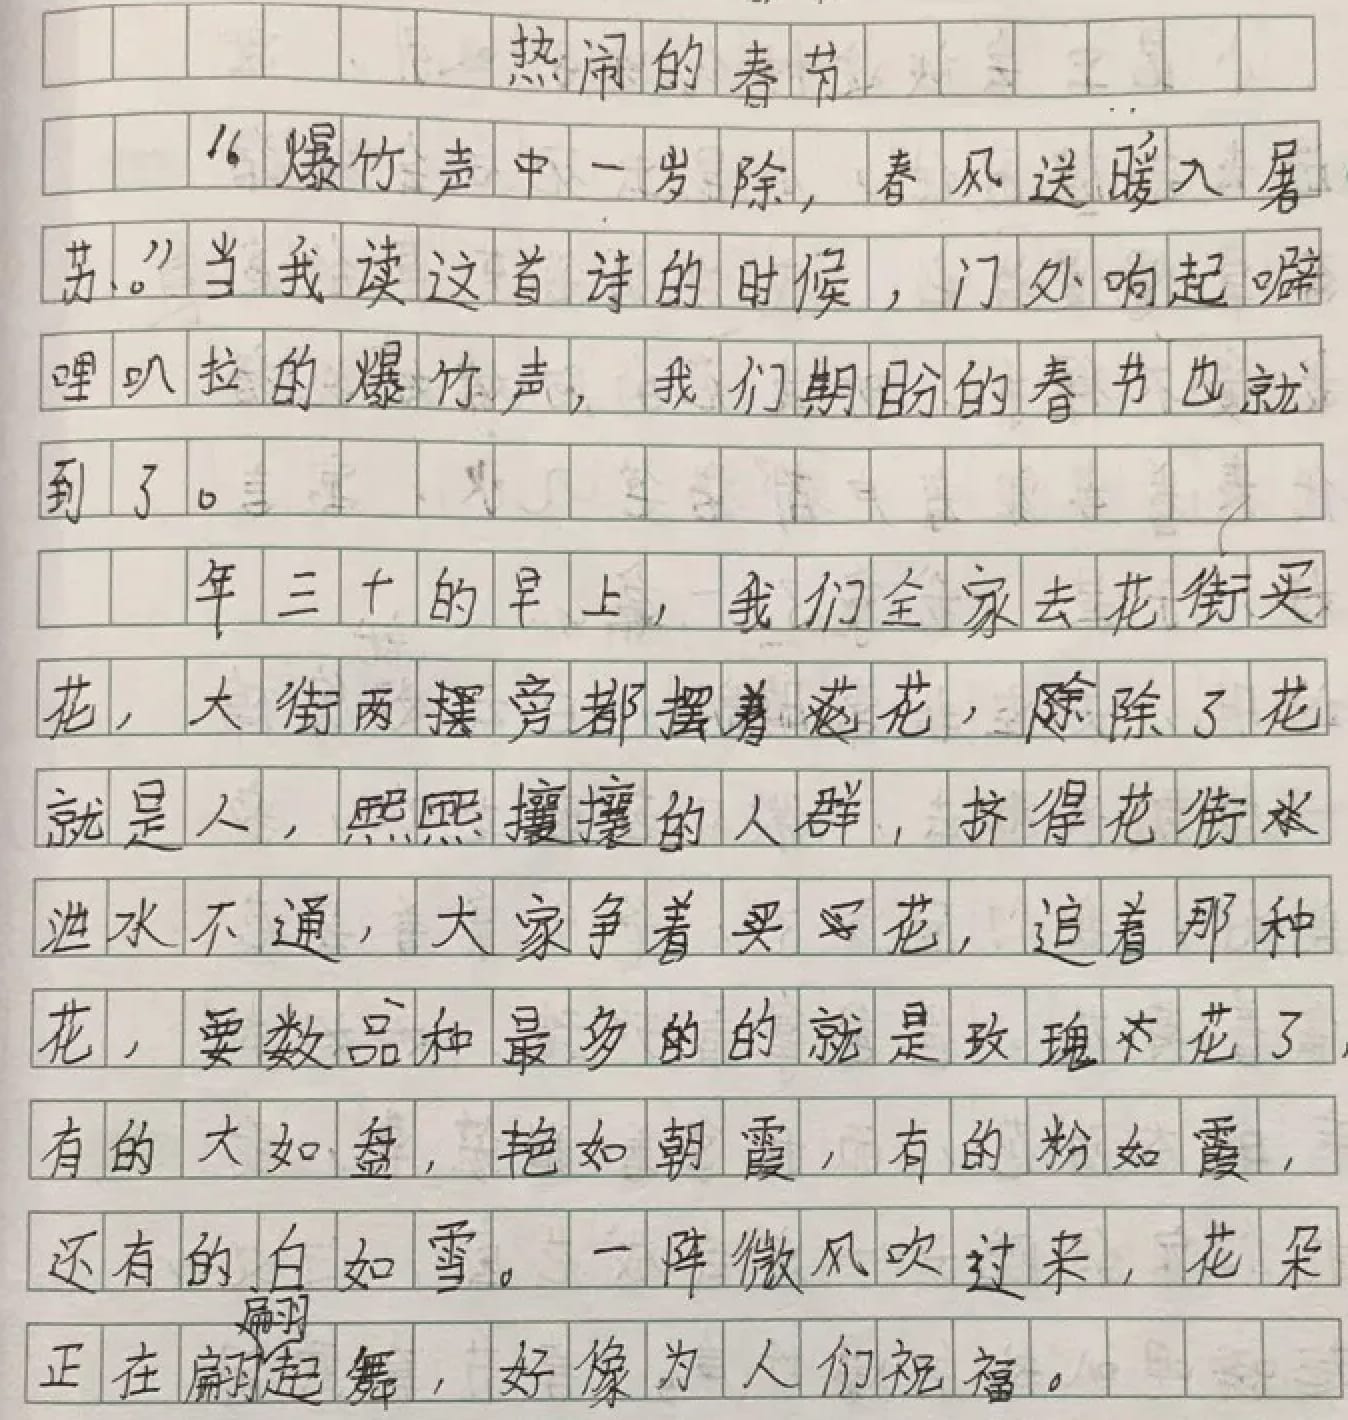 热闹的春节
“爆竹声中一岁除，春风送暖入屠
苏。”当我读这首诗的时候，门处响起噼
哩叭拉的爆竹声，我们期盼的春节也就
到了。
年三十的早上，我们全家去花街买
花，大街两旁都摆着花，除了花
就是人，熙熙攘攘的人群，挤得花街
泄水不通，大家争着买花，追着那种
花，要数品种最多的就是玫瑰花了，
有的大如盘，艳如朝霞，有的粉如霞，
还有的白如雪。一阵微风吹过来，花朵
正在翩翩起舞，好像为人们祝福。